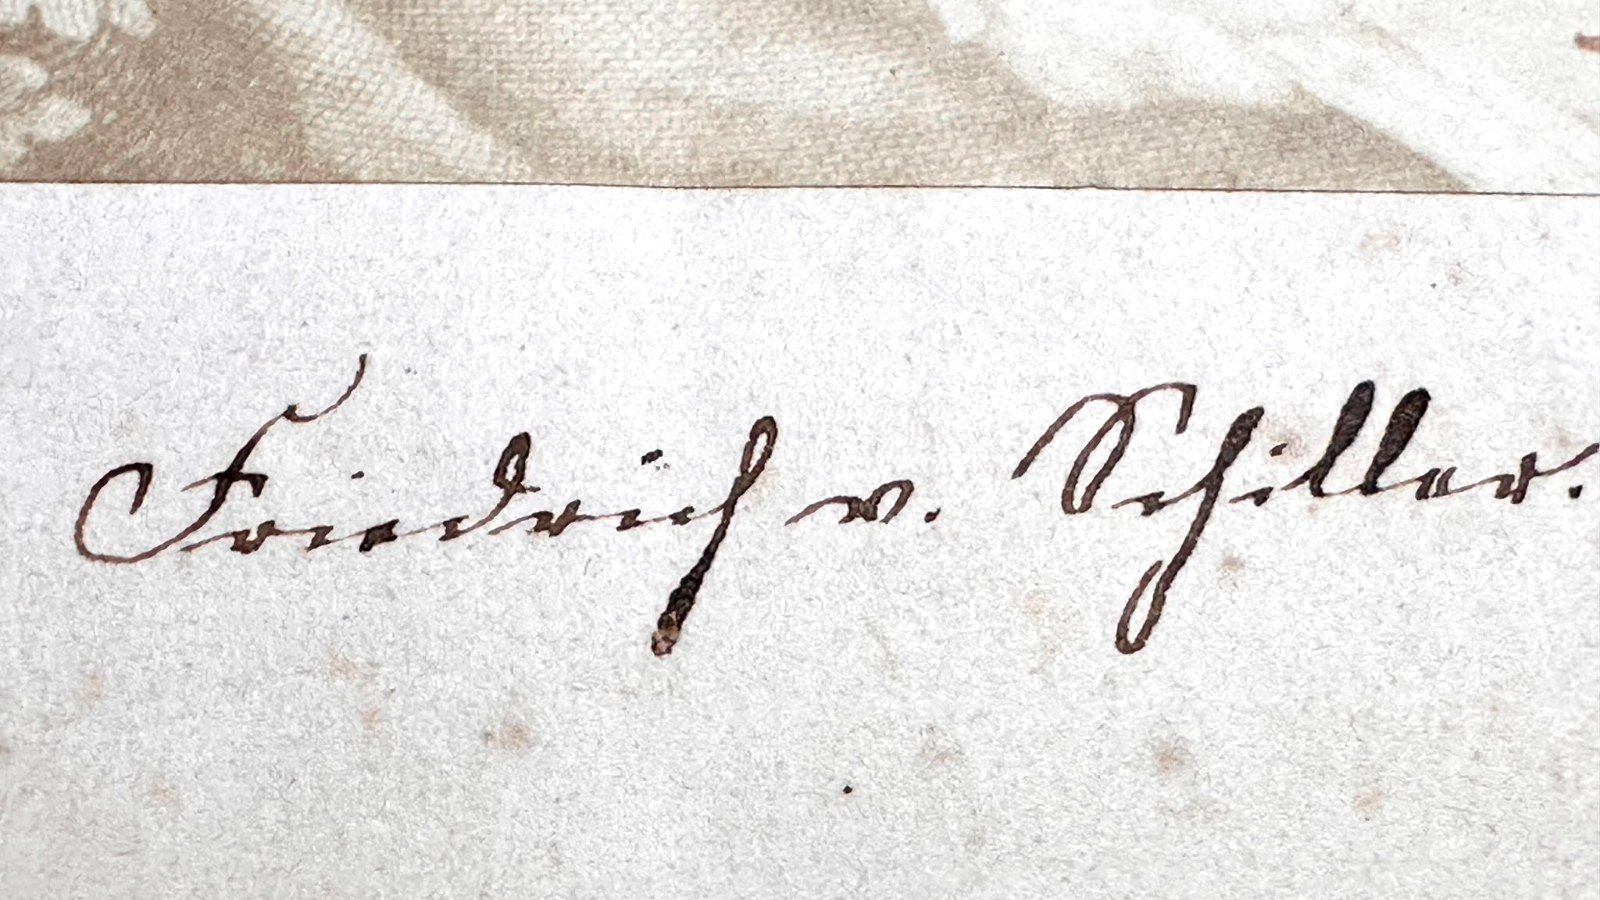 Friedrich v. Schiller.